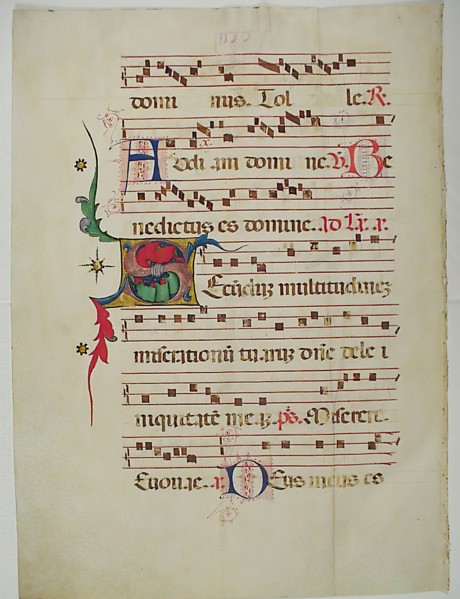 domi nus. Tol le. R.
Audi am domi ne. V. Be
nedictus es domine. Ad Lx. a.
Secūduz multitudinez
miseritionū tuaruz dne dele i
iniquitatē mea. ps. Miserere.
Euouae. a. Deus meus es